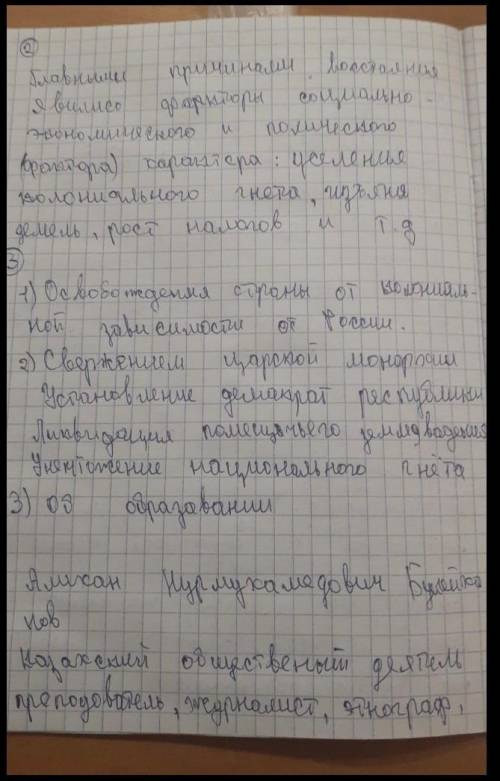 2
Главными причинами восстания
явились факторы социально-
экономического и полического
(фактора) характера: уселения
колониального гнета, изъяня
демель, рост налогов и т.д
3
1) Освобождения страны от колониаль-
ной зависимости от России.
2) Свержением царской монархии
Установление демакрат республики
Ликвидация помещичьего
Уничтожение национального гнёта
3) об образавании
Алихан Нурмухамедович Букейха
нов
Казахский общественый деятель
преподователь, журналист, этнограф,